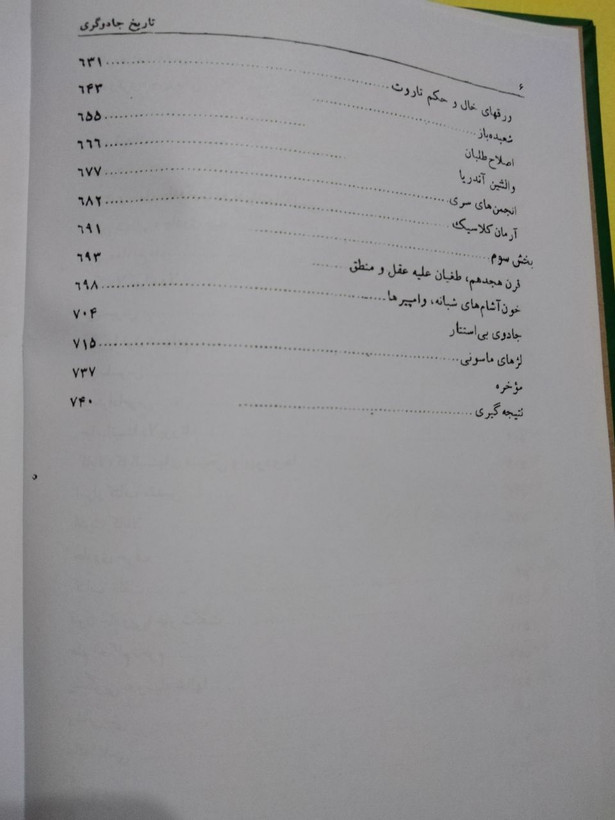 تاریخ جادوگری
۶
ورقهای خال و حکم تاروت ۶۳۱
شعبده‌باز ۶۴۳
اصلاح‌طلبان ۶۵۵
والنتین آندریا ۶۶۶
انجمن‌های سری ۶۷۷
آرمان کلاسیک ۶۸۲
بخش سوم ۶۹۱
قرن هجدهم، طغیان علیه عقل و منطق ۶۹۳
خون‌آشام‌های شبانه، وامپیرها ۶۹۸
جادوی بی‌استتار ۷۰۴
لژهای ماسونی ۷۱۵
مؤخره ۷۳۷
نتیجه‌گیری ۷۴۰